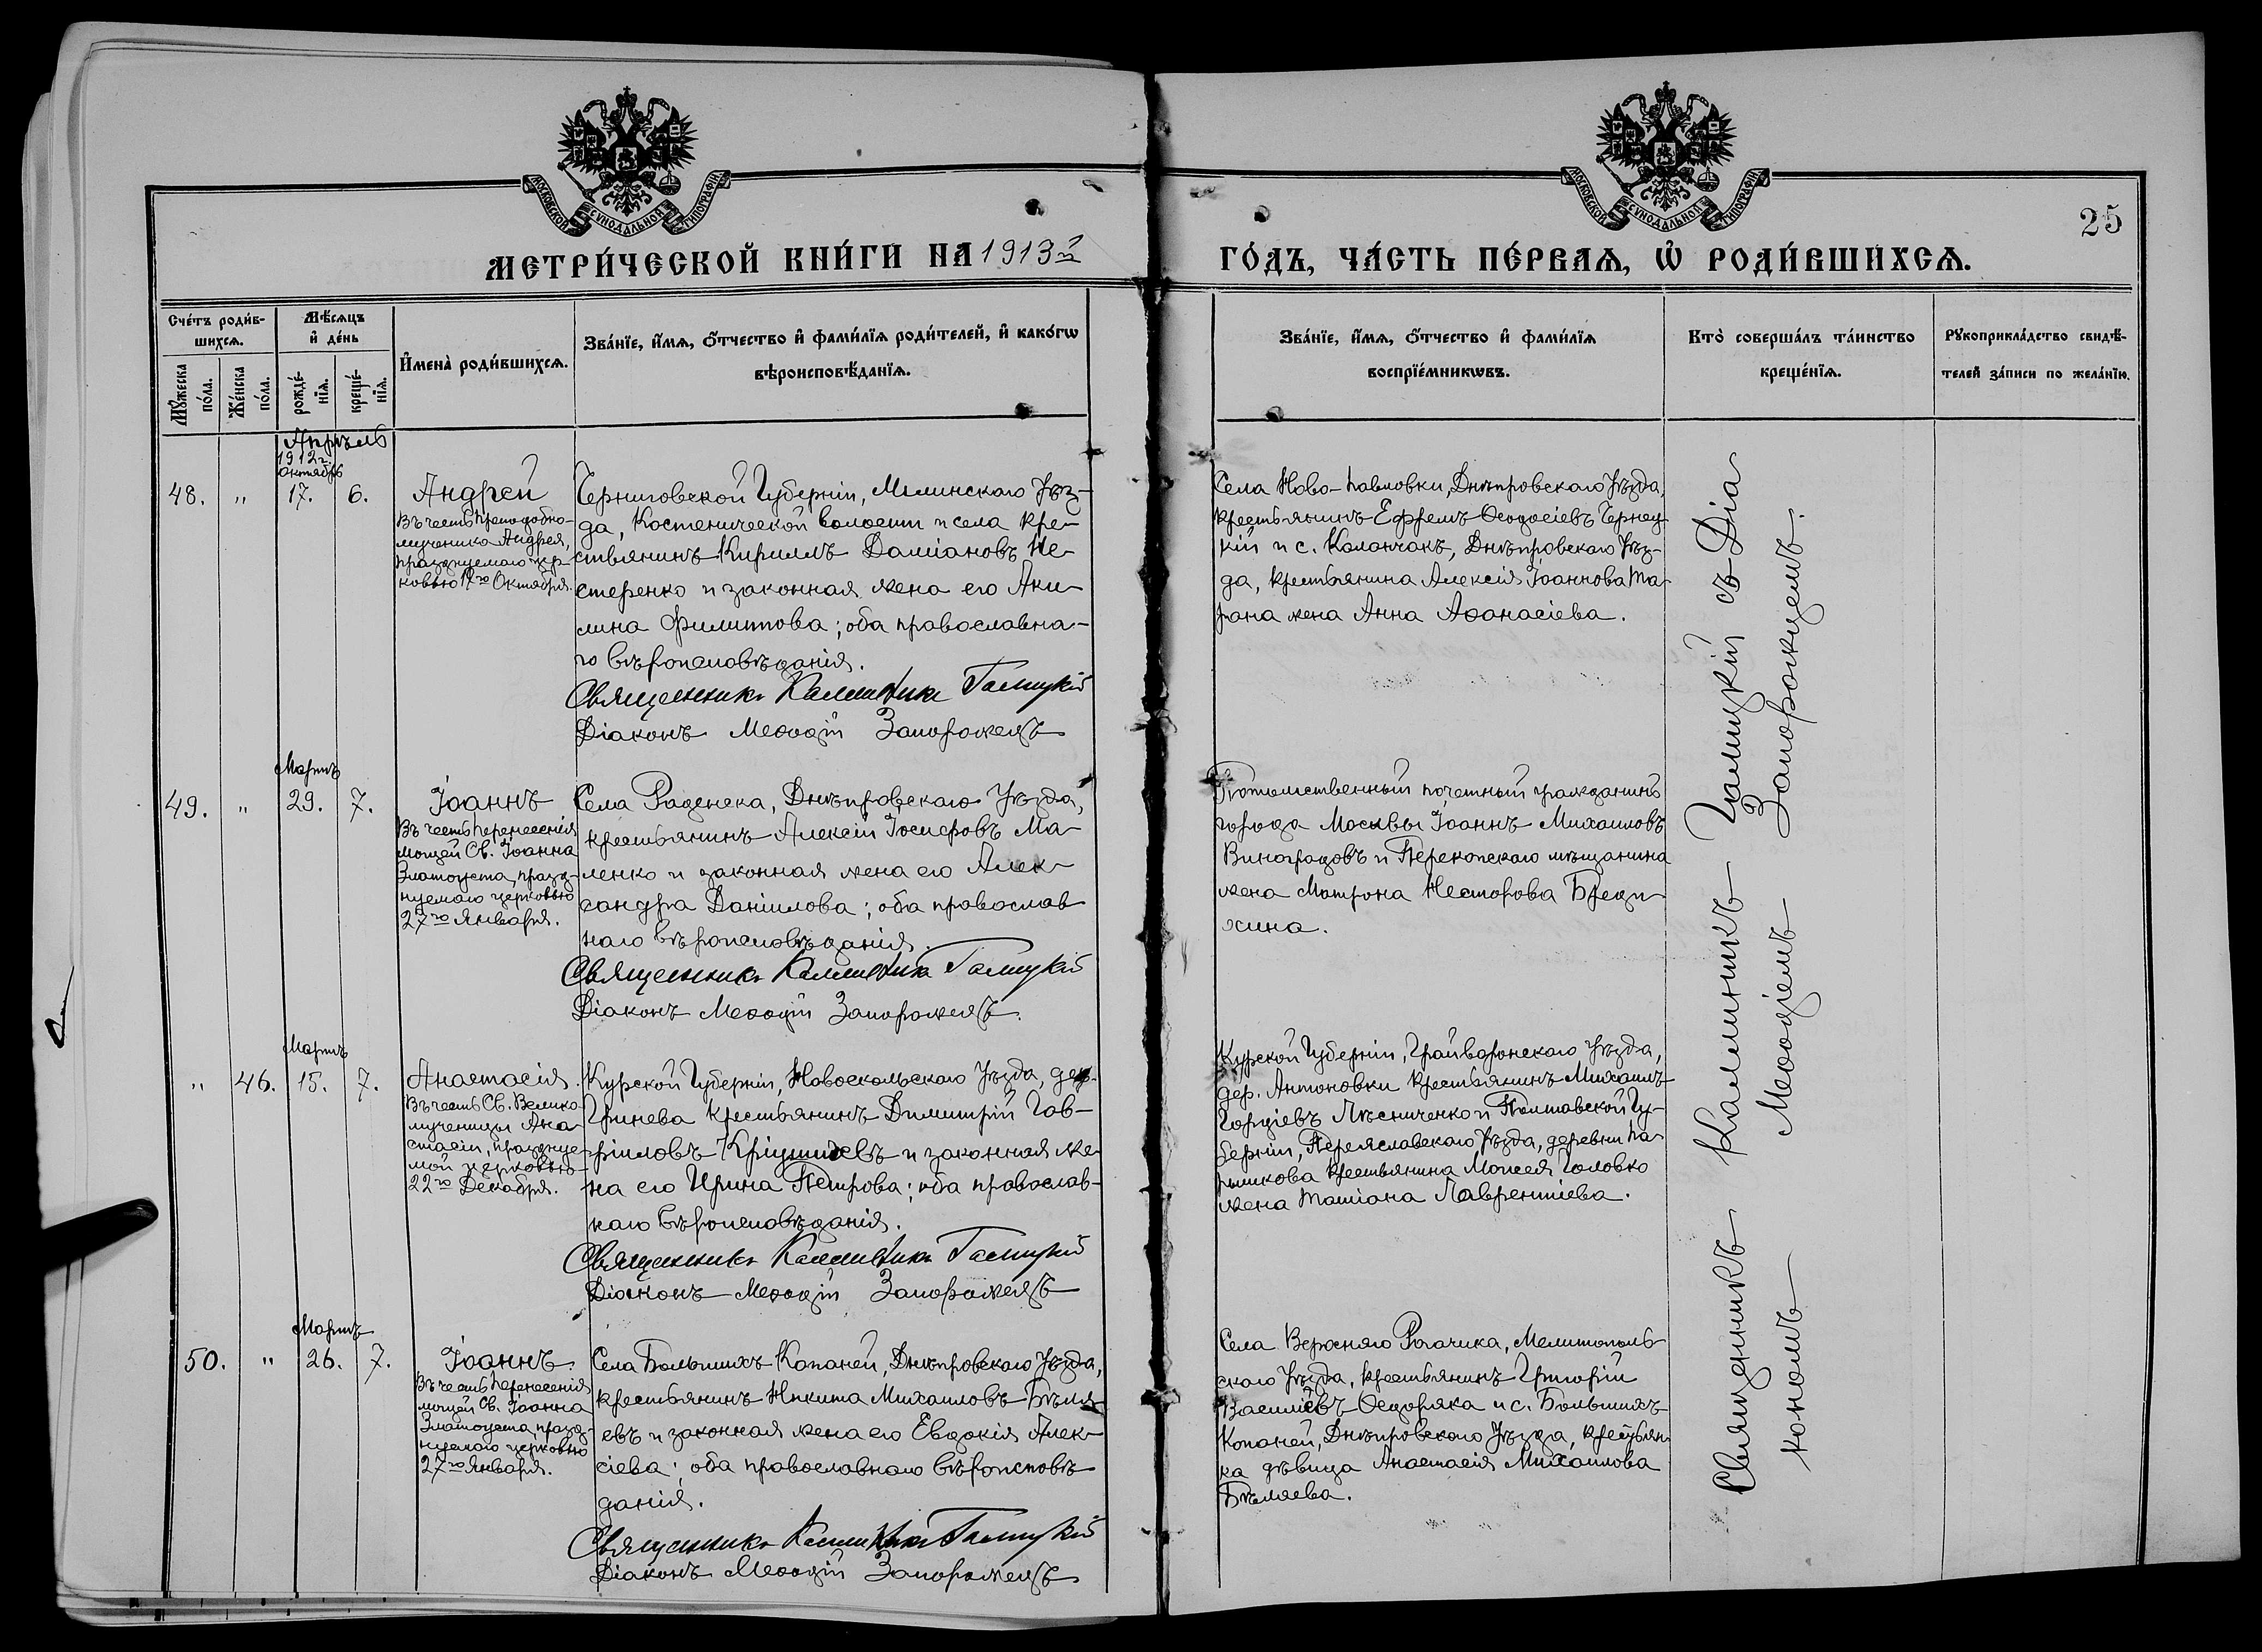 МОСКОВСКОЙ СѴНОДАЛЬНОЙ ТИПОГРАФІИ
МОСКОВСКОЙ СѴНОДАЛЬНОЙ ТИПОГРАФІИ
25
МЕТРИ́ЧЕСКОЙ КНИ́ГИ НА 1913й
ГО́ДЪ, ЧА́СТЬ ПЕ́РВАѦ, Ѡ҆ РОДИ́ВШИХСѦ.
Сче́тъ роди́в-
шихсѧ.
Мꙋ́жеска по́ла.
Же́нска по́ла.
Мѣ́сѧцъ
и҆ де́нь
рожде́-
нїѧ.
креще́-
нїѧ.
И҆мена̀ роди́вшихсѧ.
Зва́нїе, и҆́мѧ, ѻ҆́тчество и҆ фами́лїѧ роди́телей, и҆ како́гѡ
вѣроисповѣ́данїѧ.
Зва́нїе, и҆́мѧ, ѻ҆́тчество и҆ фами́лїѧ
воспрїе́мникѡвъ.
Кто̀ соверша́лъ та́инство
креще́нїѧ.
Рꙋкоприкла́дство свидѣ́-
телей за́писи по жела́нїю.
Апрѣль
1912 г.
Октябрь
48. „ 17. 6.
Андрей
Въ честь преподобно-
мученика Андрея,
празднуемаго цер-
ковью 17го Октября.
Черниговской Губерніи, Мглинскаго Уѣз-
да, Костенической волости и села кре-
стьянинъ Кириллъ Даміановъ Не-
стеренко и законная жена его Аки-
лина Филиппова; оба православна-
го вѣроисповѣданія.
Священникъ Каллиникъ Галицкій
Діаконъ Меѳодій Запорожецъ
Села Ново-Павловки, Днѣпровскаго Уѣзда,
крестьянинъ Ефремъ Ѳеодосіевъ Чернец-
кій и с. Каланчакъ, Днѣпровскаго Уѣз-
да, крестьянина Алексія Іоаннова Та-
рана жена Анна Аѳанасіева.
Мартъ
49. „ 29. 7.
Іоаннъ
Въ честь перенесенія
мощей Св. Іоанна
Златоуста, празд-
нуемаго церковью
27го Января.
Села Раденска, Днѣпровскаго Уѣзда,
крестьянинъ Алексій Іосифовъ Ма-
ленко и законная жена его Алек-
сандра Даніилова; оба православ
наго вѣроисповѣданія.
Священникъ Каллиникъ Галицкій
Діаконъ Меѳодій Запорожецъ.
Потомственный почетный гражданинъ
города Москвы Іоаннъ Михаиловъ
Виноградовъ и Перекопскаго мѣщанина
жена Матрона Несторова Бреди-
хина.
Мартъ
„ 46. 15. 7.
Анастасія.
Въ честь Св. Велико
мученицы Ана
стасіи, празднуе
мой церковью
22го Декабря.
Курской Губерніи, Новоскольскаго Уѣзда, дер.
Гринева крестьянинъ Димитрій Гав-
ріиловъ и законная же-
на его Ирина Петрова; оба православ-
наго вѣроисповѣданія.
Священникъ Каллиникъ Галицкій
Діаконъ Меѳодій Запорожецъ
Курской Губерніи, Грайворонскаго Уѣзда,
дер. Антоновки крестьянинъ Михаилъ
Гордіевъ Лѣсниченко и Полтавской Гу-
берніи, Переяславскаго Уѣзда, деревни Па-
ришкова крестьянина Моисея Головко
жена Татіана Лаврентіева.
Мартъ
50. „ 26. 7.
Іоаннъ.
Въ честь перенесенія
мощей Св. Іоанна
Златоуста, празд-
нуемаго церковью
27го Января.
Села Большихъ Копаней, Днѣпровскаго Уѣзда,
крестьянинъ Никита Михаиловъ Бѣля-
евъ и законная жена его Евдокія Алек-
сіева; оба православнаго вѣроисповѣ
данія.
Священникъ Каллиникъ Галицкій
Діаконъ Меѳодій Запорожецъ
Села Верхняго Рогачика, Мелитополь-
скаго Уѣзда, крестьянинъ Григорій
Василіевъ Ѳедоряка и с. Большихъ
Копаней, Днѣпровскаго Уѣзда, крестьян
ка дѣвица Анастасія Михаилова
Бѣляева.
Священникъ Каллиникъ Галицкій съ Діа
кономъ Меѳодіемъ Запорожцемъ.